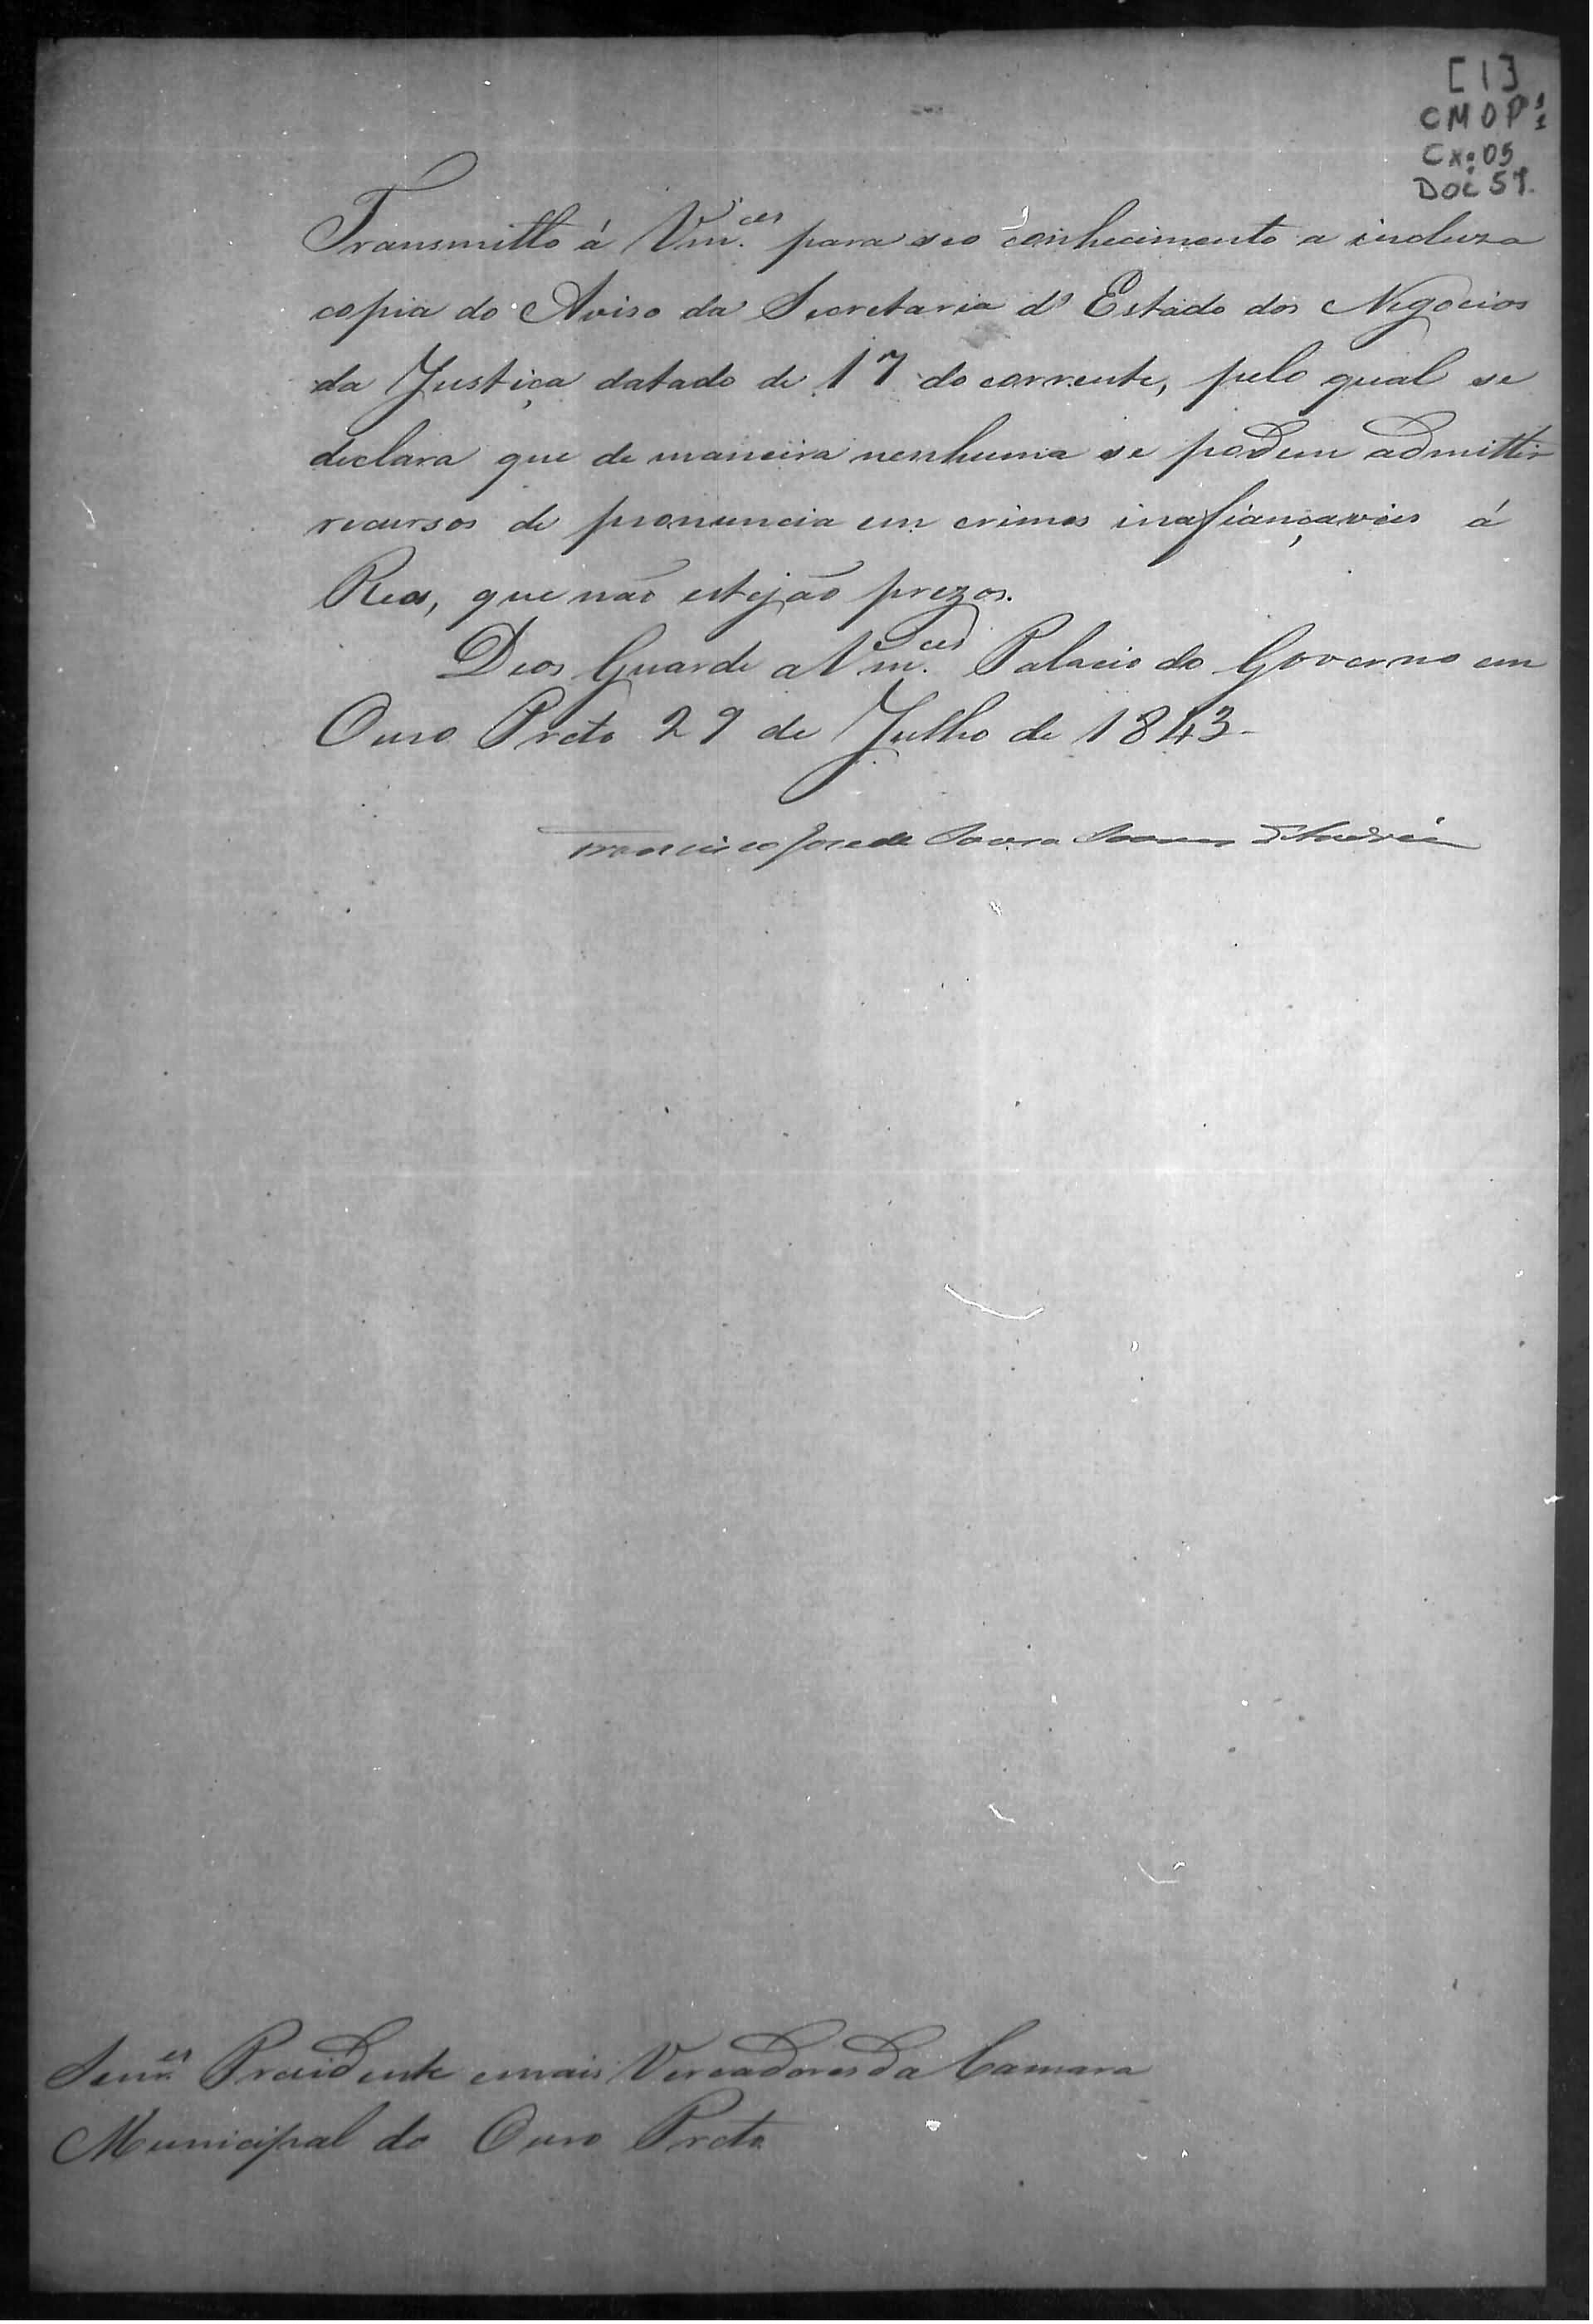 [1]
CMOP:
Cx: 05
DOC 57.
Transmitto á Vm.ces para seo conhecimento a incluza
copia do Aviso da Secretaria d'Estado dos Negocios
da Justiça datado de 17 do corrente, pelo qual se
declara que de maneira nenhuma se podem admittir
recursos de pronuncia em crimes inafiançaveis á
Reos, que não estejão prezos.
Deos Guarde a Vm.ces Palacio do Governo em
Ouro Preto 29 de Julho de 1843
Francisco Jose de Souza Soares d'Andréa
Senr.es Presidente e mais Vereadores da Camara
Municipal do Ouro Preto